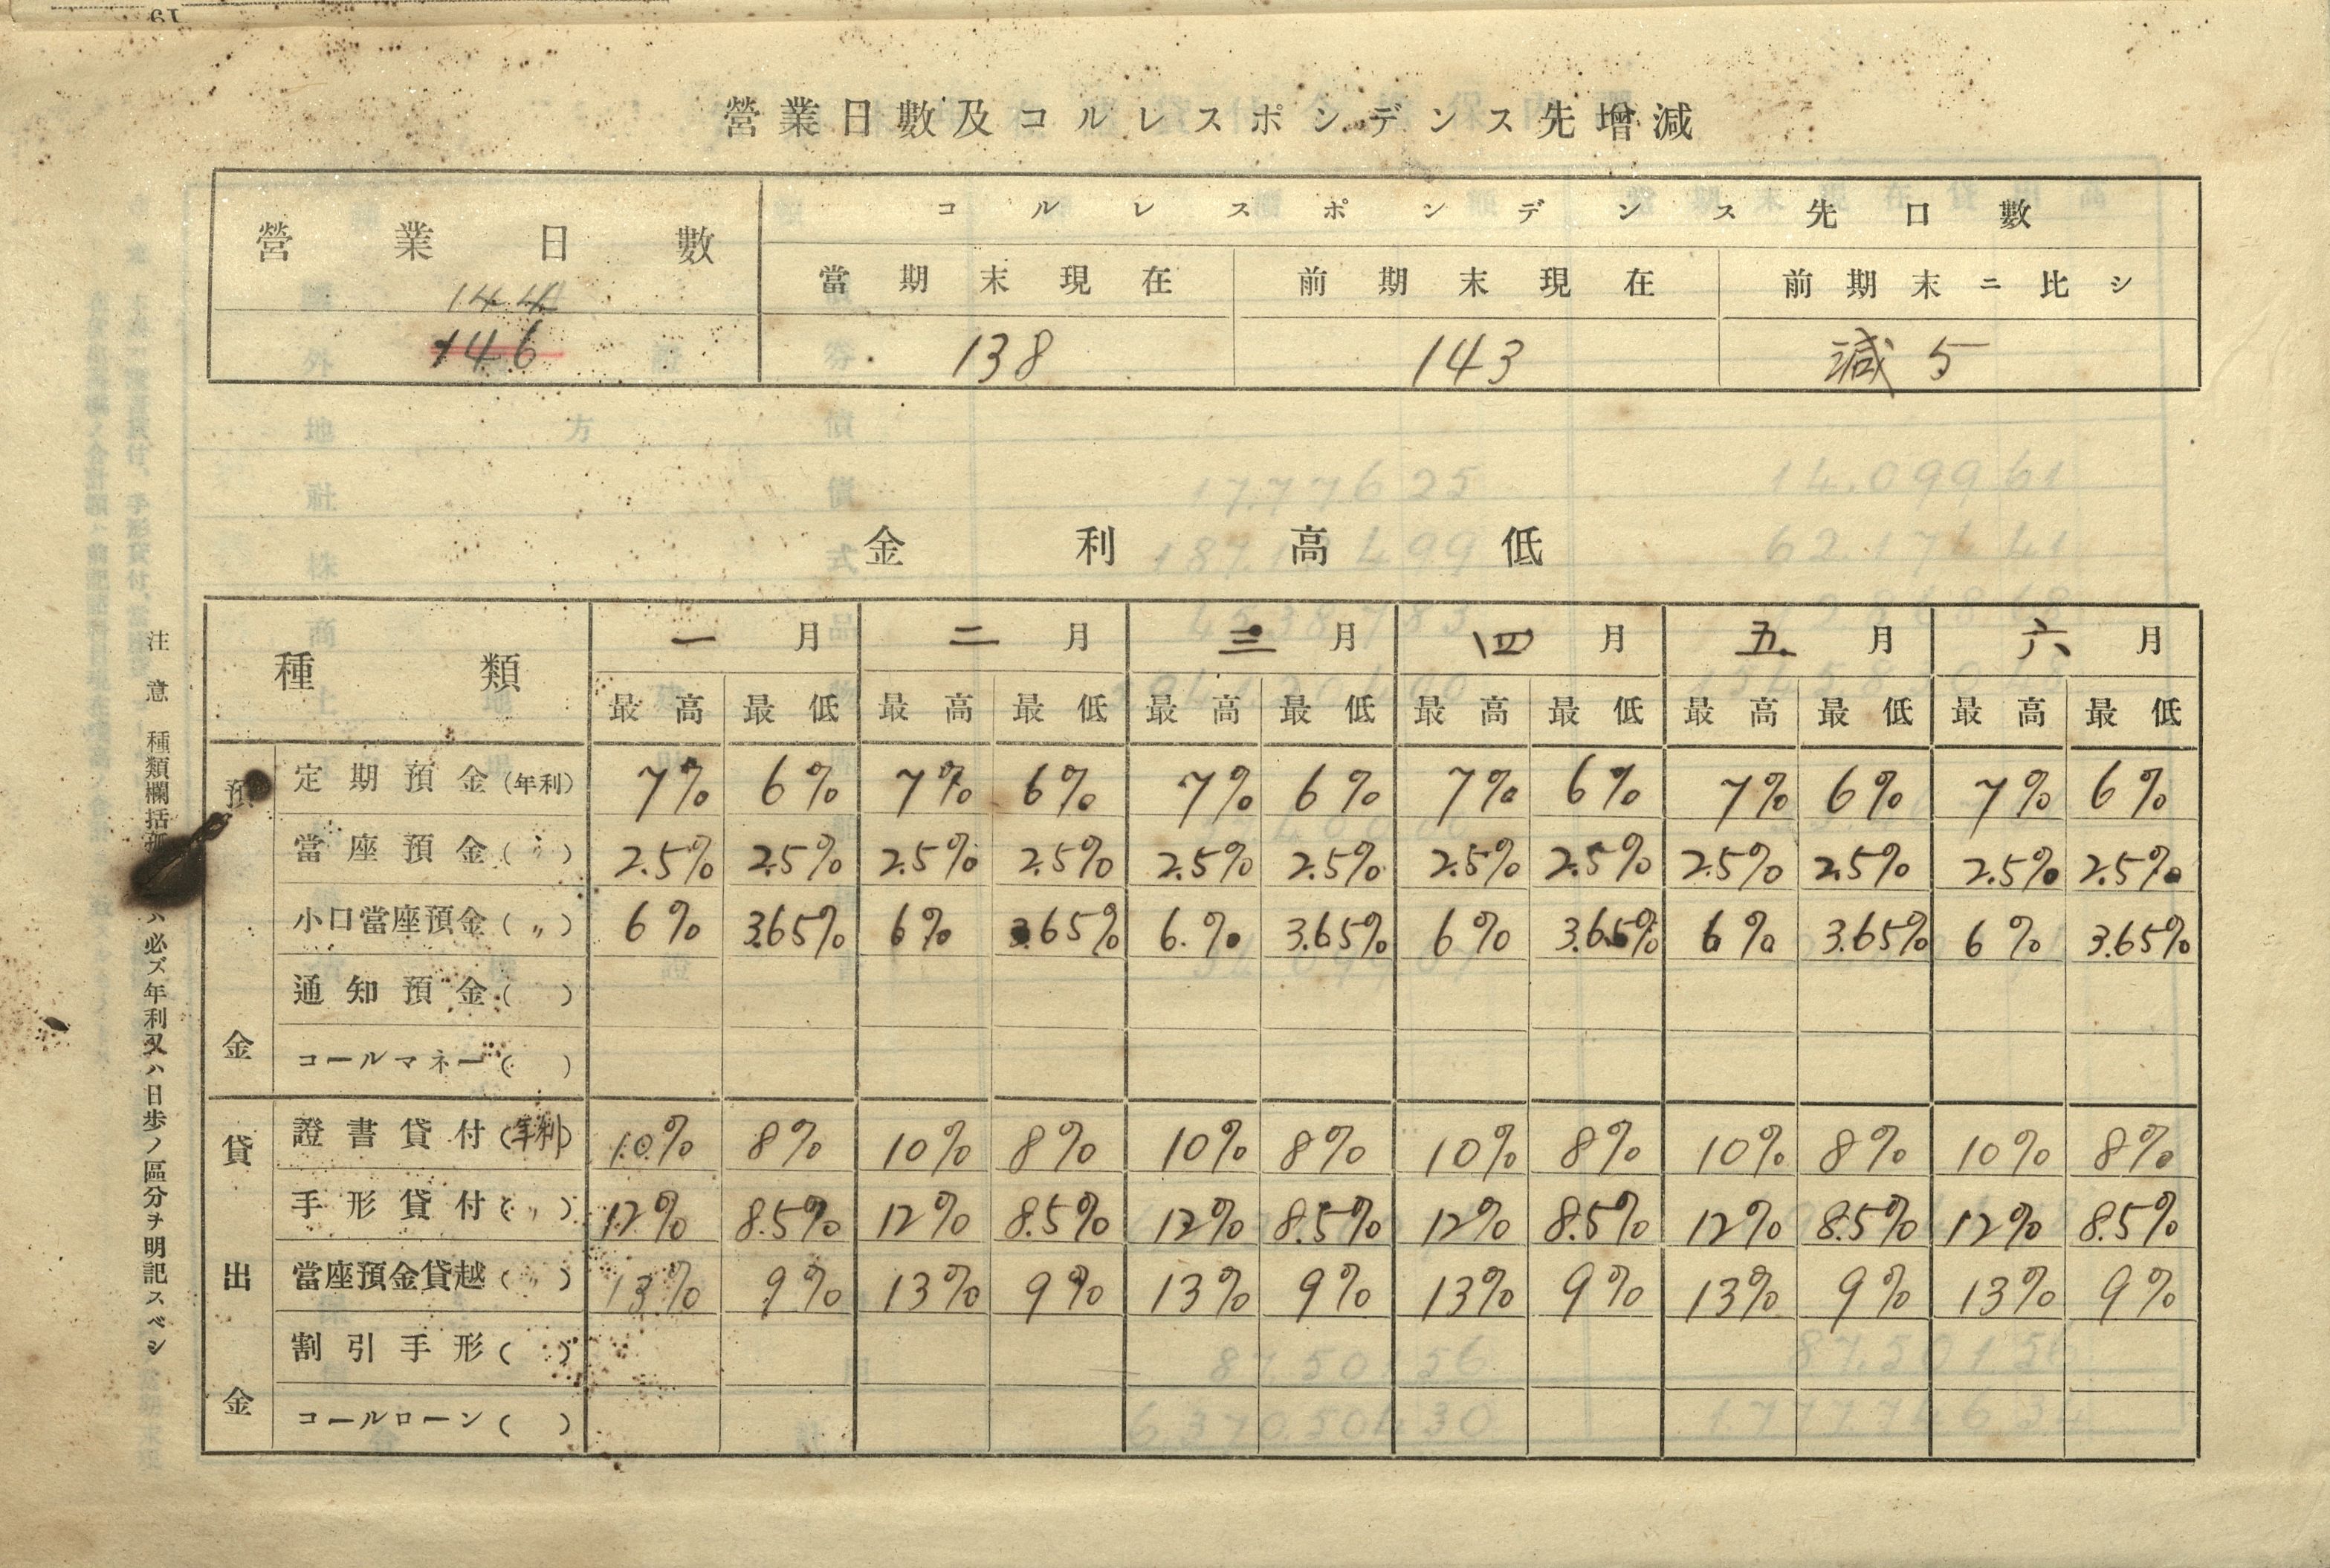 營業日數及コルレスポンデンス先增減
營業日數 コルレスポンデンス先口數
當期末現在 前期末現在 前期末ニ比シ
144
146 138 143 減 5
金利高低
種類 一月 二月 三月 四月 五月 六月
最高 最低 最高 最低 最高 最低 最高 最低 最高 最低 最高 最低
預金
定期預金(年利) 7% 6% 7% 6% 7% 6% 7% 6% 7% 6% 7% 6%
當座預金(〃) 2.5% 2.5% 2.5% 2.5% 2.5% 2.5% 2.5% 2.5% 2.5% 2.5% 2.5% 2.5%
小口當座預金(〃) 6% 3.65% 6% 3.65% 6.% 3.65% 6% 3.65% 6% 3.65% 6% 3.65%
通知預金( )
コールマネー( )
貸出金
證書貸付(年利) 10% 8% 10% 8% 10% 8% 10% 8% 10% 8% 10% 8%
手形貸付(〃) 12% 8.5% 12% 8.5% 12% 8.5% 12% 8.5% 12% 8.5% 12% 8.5%
當座預金貸越(〃) 13% 9% 13% 9% 13% 9% 13% 9% 13% 9% 13% 9%
割引手形( )
コールローン( )
注意 種類欄括弧ハ必ズ年利又ハ日歩ノ區分ヲ明記スベシ